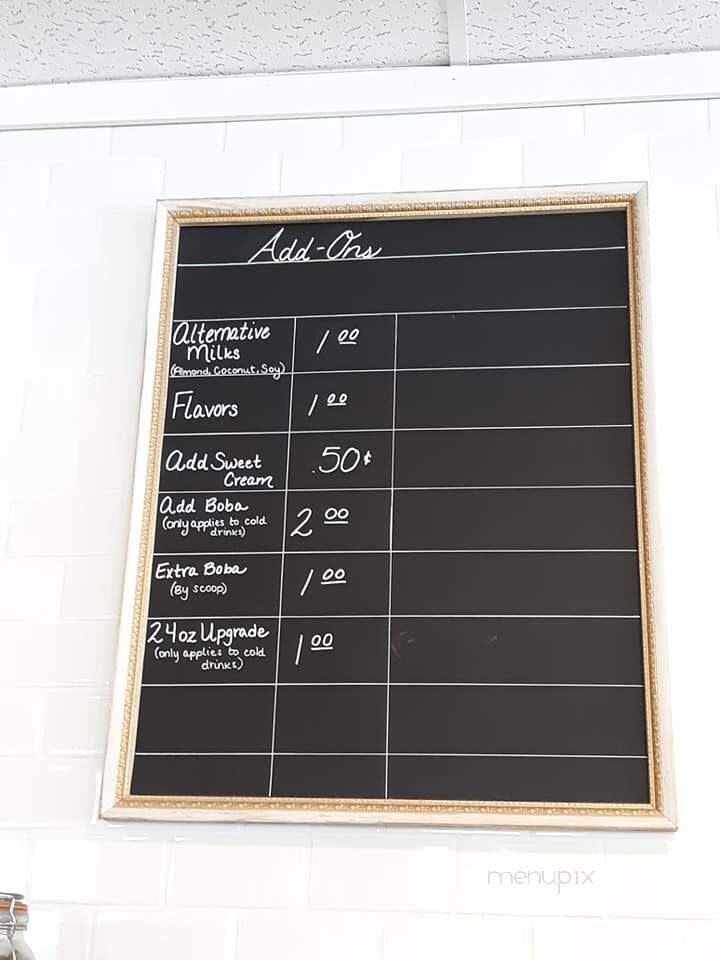 Add-Ons
Alternative
Milks
(Almond, Coconut, Soy)
1 00
Flavors
1 00
Add Sweet
Cream
.50¢
Add Boba
(only applies to cold
drinks)
2 00
Extra Boba
(By scoop)
1 00
24oz Upgrade
(only applies to cold
drinks)
1 00
menupix